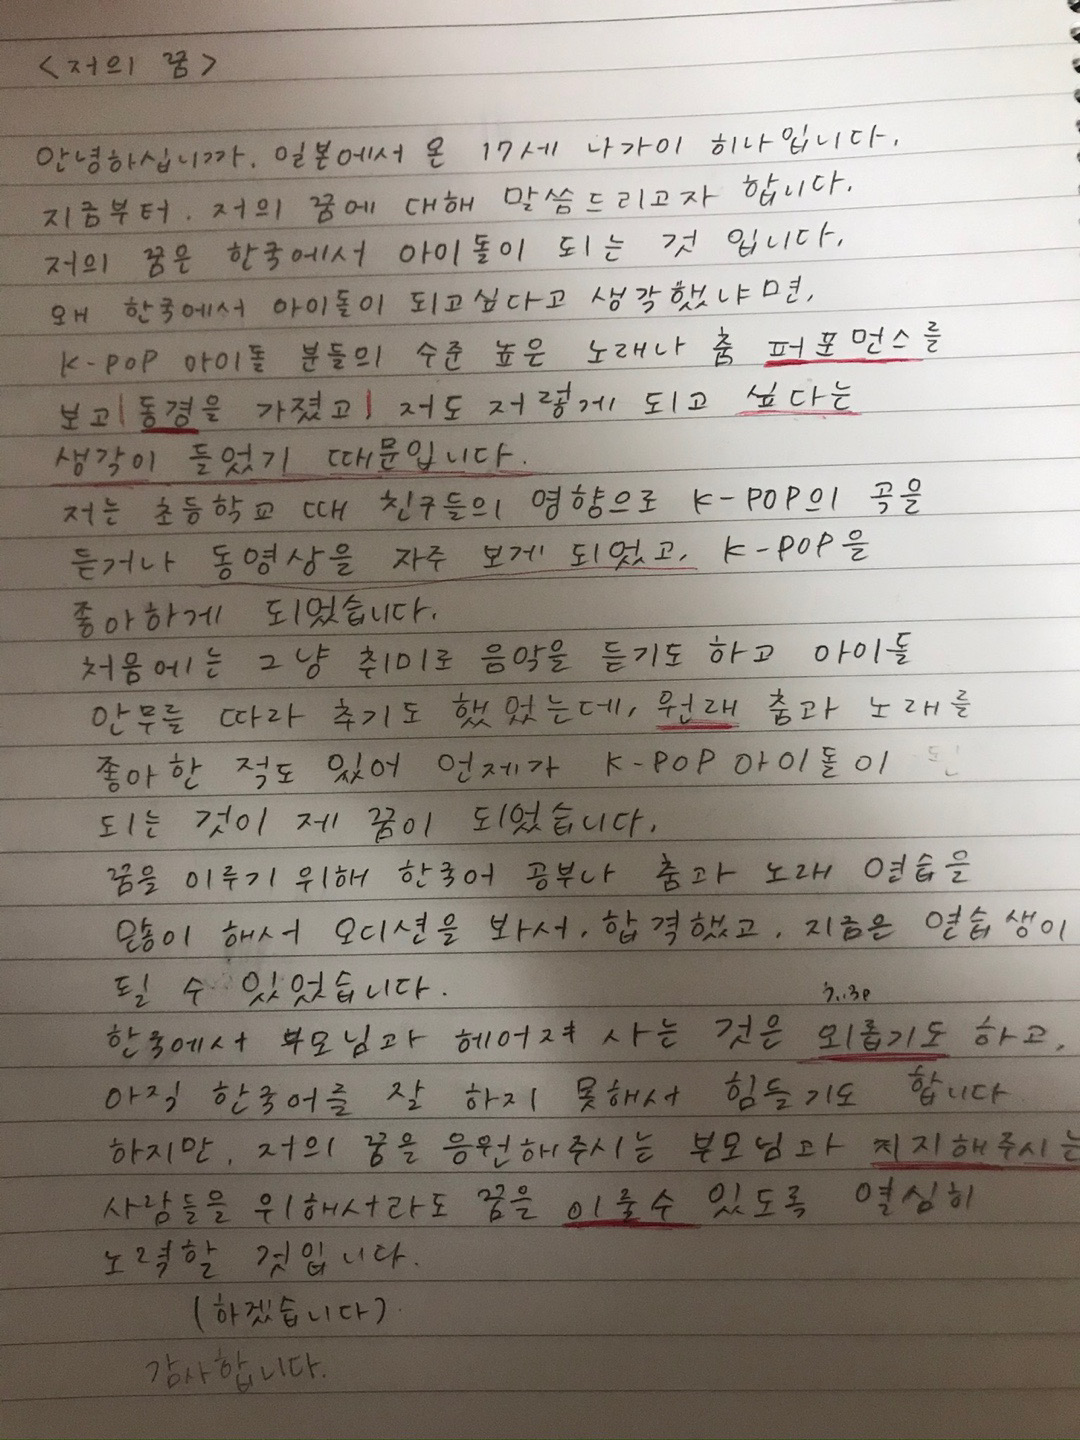 <저의 꿈>
안녕하십니까. 일본에서 온 17세 나가이 히나입니다.
지금부터. 저의 꿈에 대해 말씀드리고자 합니다.
저의 꿈은 한국에서 아이돌이 되는 것 입니다.
왜 한국에서 아이돌이 되고싶다고 생각했냐면,
K-POP 아이돌 분들의 수준 높은 노래나 춤 퍼포먼스를
보고 동경을 가졌고 저도 저렇게 되고 싶다는
생각이 들었기 때문입니다.
저는 초등학교 때 친구들의 영향으로 K-POP의 곡을
듣거나 동영상을 자주 보게 되었고, K-POP을
좋아하게 되었습니다.
처음에는 그냥 취미로 음악을 듣기도 하고 아이돌
안무를 따라 추기도 했었는데, 원래 춤과 노래를
좋아한 적도 있어 언제가 K-POP 아이돌이
되는 것이 제 꿈이 되었습니다.
꿈을 이루기 위해 한국어 공부나 춤과 노래 연습을
많이 해서 오디션을 봐서, 합격했고, 지금은 연습생이
될 수 있었습니다.
한국에서 부모님과 헤어져 사는 것은 외롭기도 하고,
아직 한국어를 잘 하지 못해서 힘들기도 합니다
하지만, 저의 꿈을 응원해주시는 부모님과 지지해주시는
사람들을 위해서라도 꿈을 이룰수 있도록 열심히
노력할 것입니다.
(하겠습니다)
감사합니다.